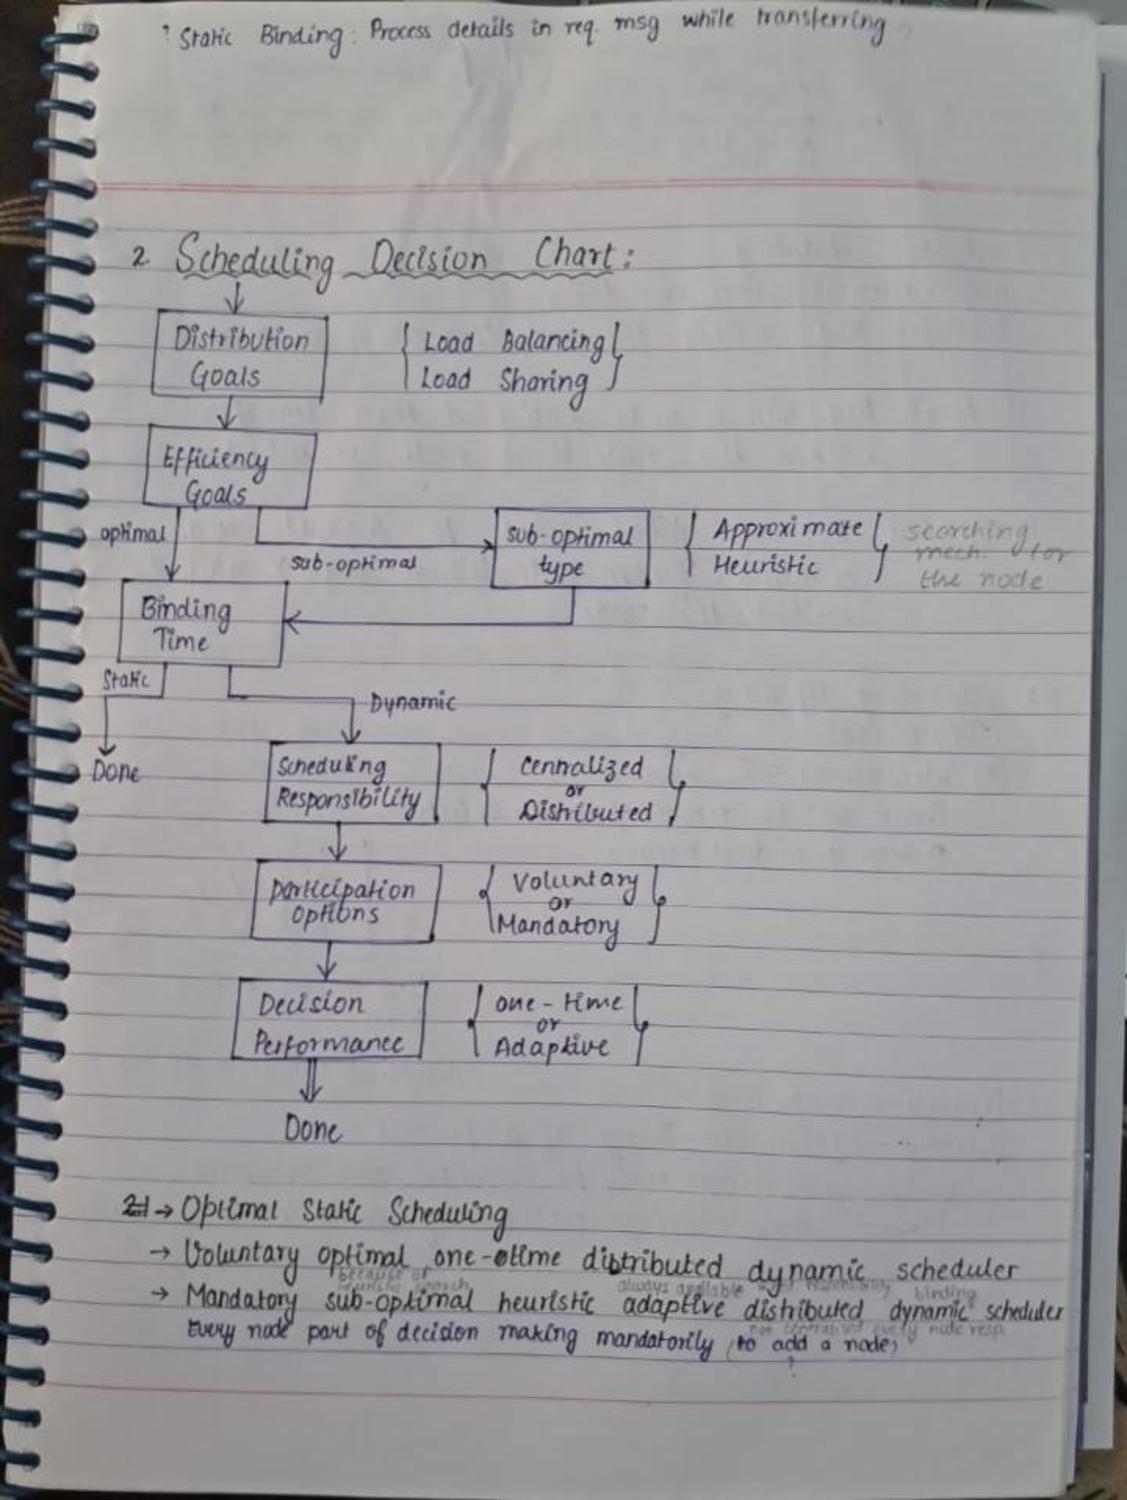 ? Static Binding: Process details in req. msg while transferring
2. Scheduling Decision Chart:
Distribution
Goals
Load Balancing
Load Sharing
Efficiency
Goals
optimal
sub-optimal
sub-optimal
type
Approximate
Heuristic
searching
mech. for
the node
Binding
Time
Static
Dynamic
Done
Scheduling
Responsibility
Centralized
or
Distributed
participation
options
Voluntary
or
Mandatory
Decision
Performance
one-time
or
Adaptive
Done
→ Optimal Static Scheduling
→ Voluntary optimal one-time distributed dynamic scheduler
because of
heuristic search
always available
binding
→ Mandatory sub-optimal heuristic adaptive distributed dynamic scheduler
not centralised every node resp.
Every node part of decision making mandatorily (to add a node)
?